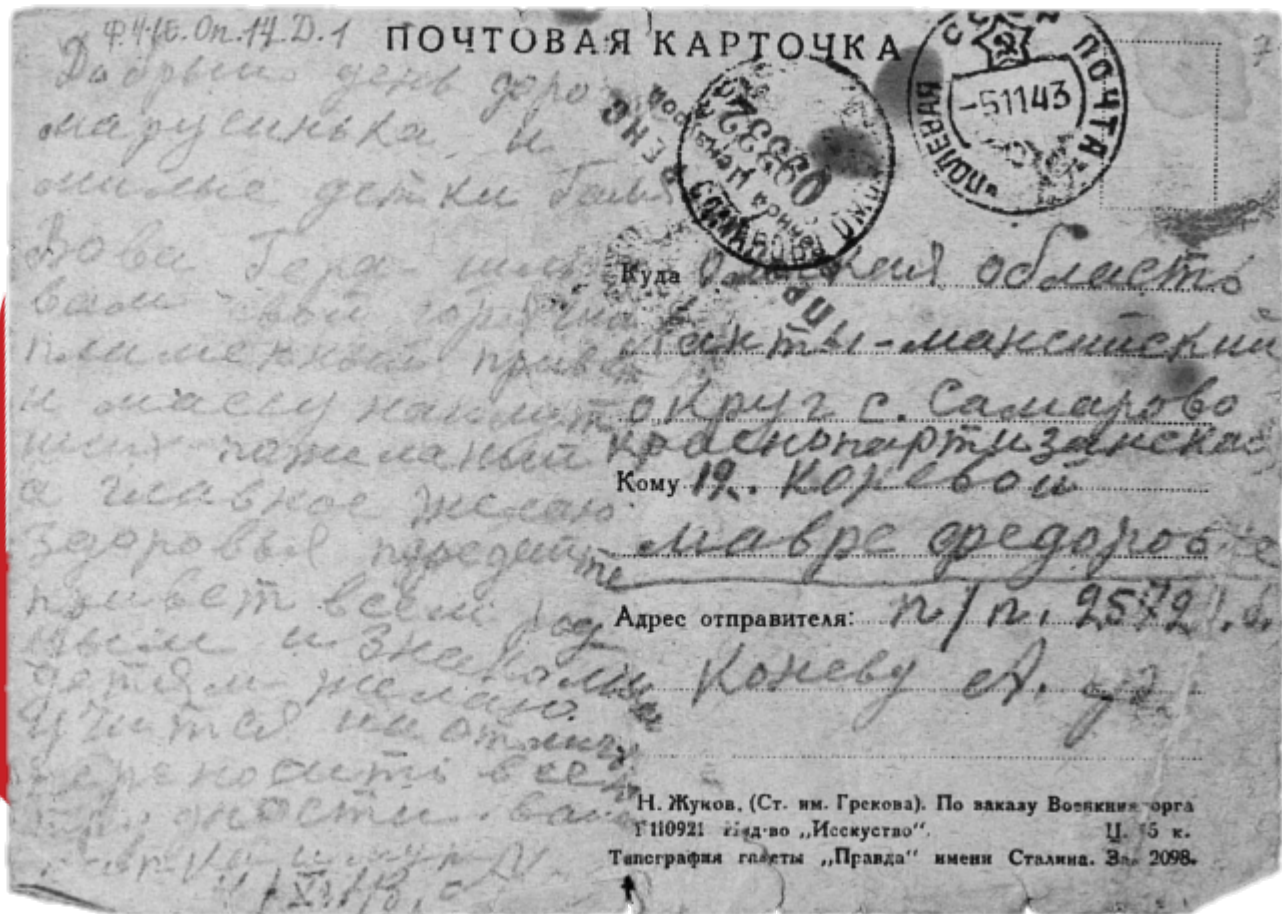 Ф.418. Оп.14 Д.1
ПОЧТОВАЯ КАРТОЧКА
7
Добрый день доро
марусинька, и
милые детки Галя
Вова Гера шлю
вам свой горячий
пламенный привет
и массу наилут
ших пожеланый
а главное желаю
здоровья передайте
привет всем род
ным и знакомым
детям желаю
учится на отличн
переносить все
трудности
ПОЛЕВАЯ ПОЧТА
-51143
09532
ПРОСМОТРЕНО
Куда Омская область
Ханты-мансийский
округ с. Самарово
краснопартизанская
Кому 19. Коневой
мавре федоровне
Адрес отправителя: п/п. 2572
Коневу А. ф.
Н. Жуков. (Ст. им. Грекова). По заказу Военкниготорга
Г110921 Изд-во „Исскуство“. Ц. 75 к.
Типография газеты „Правда“ имени Сталина. Зак. 2098.